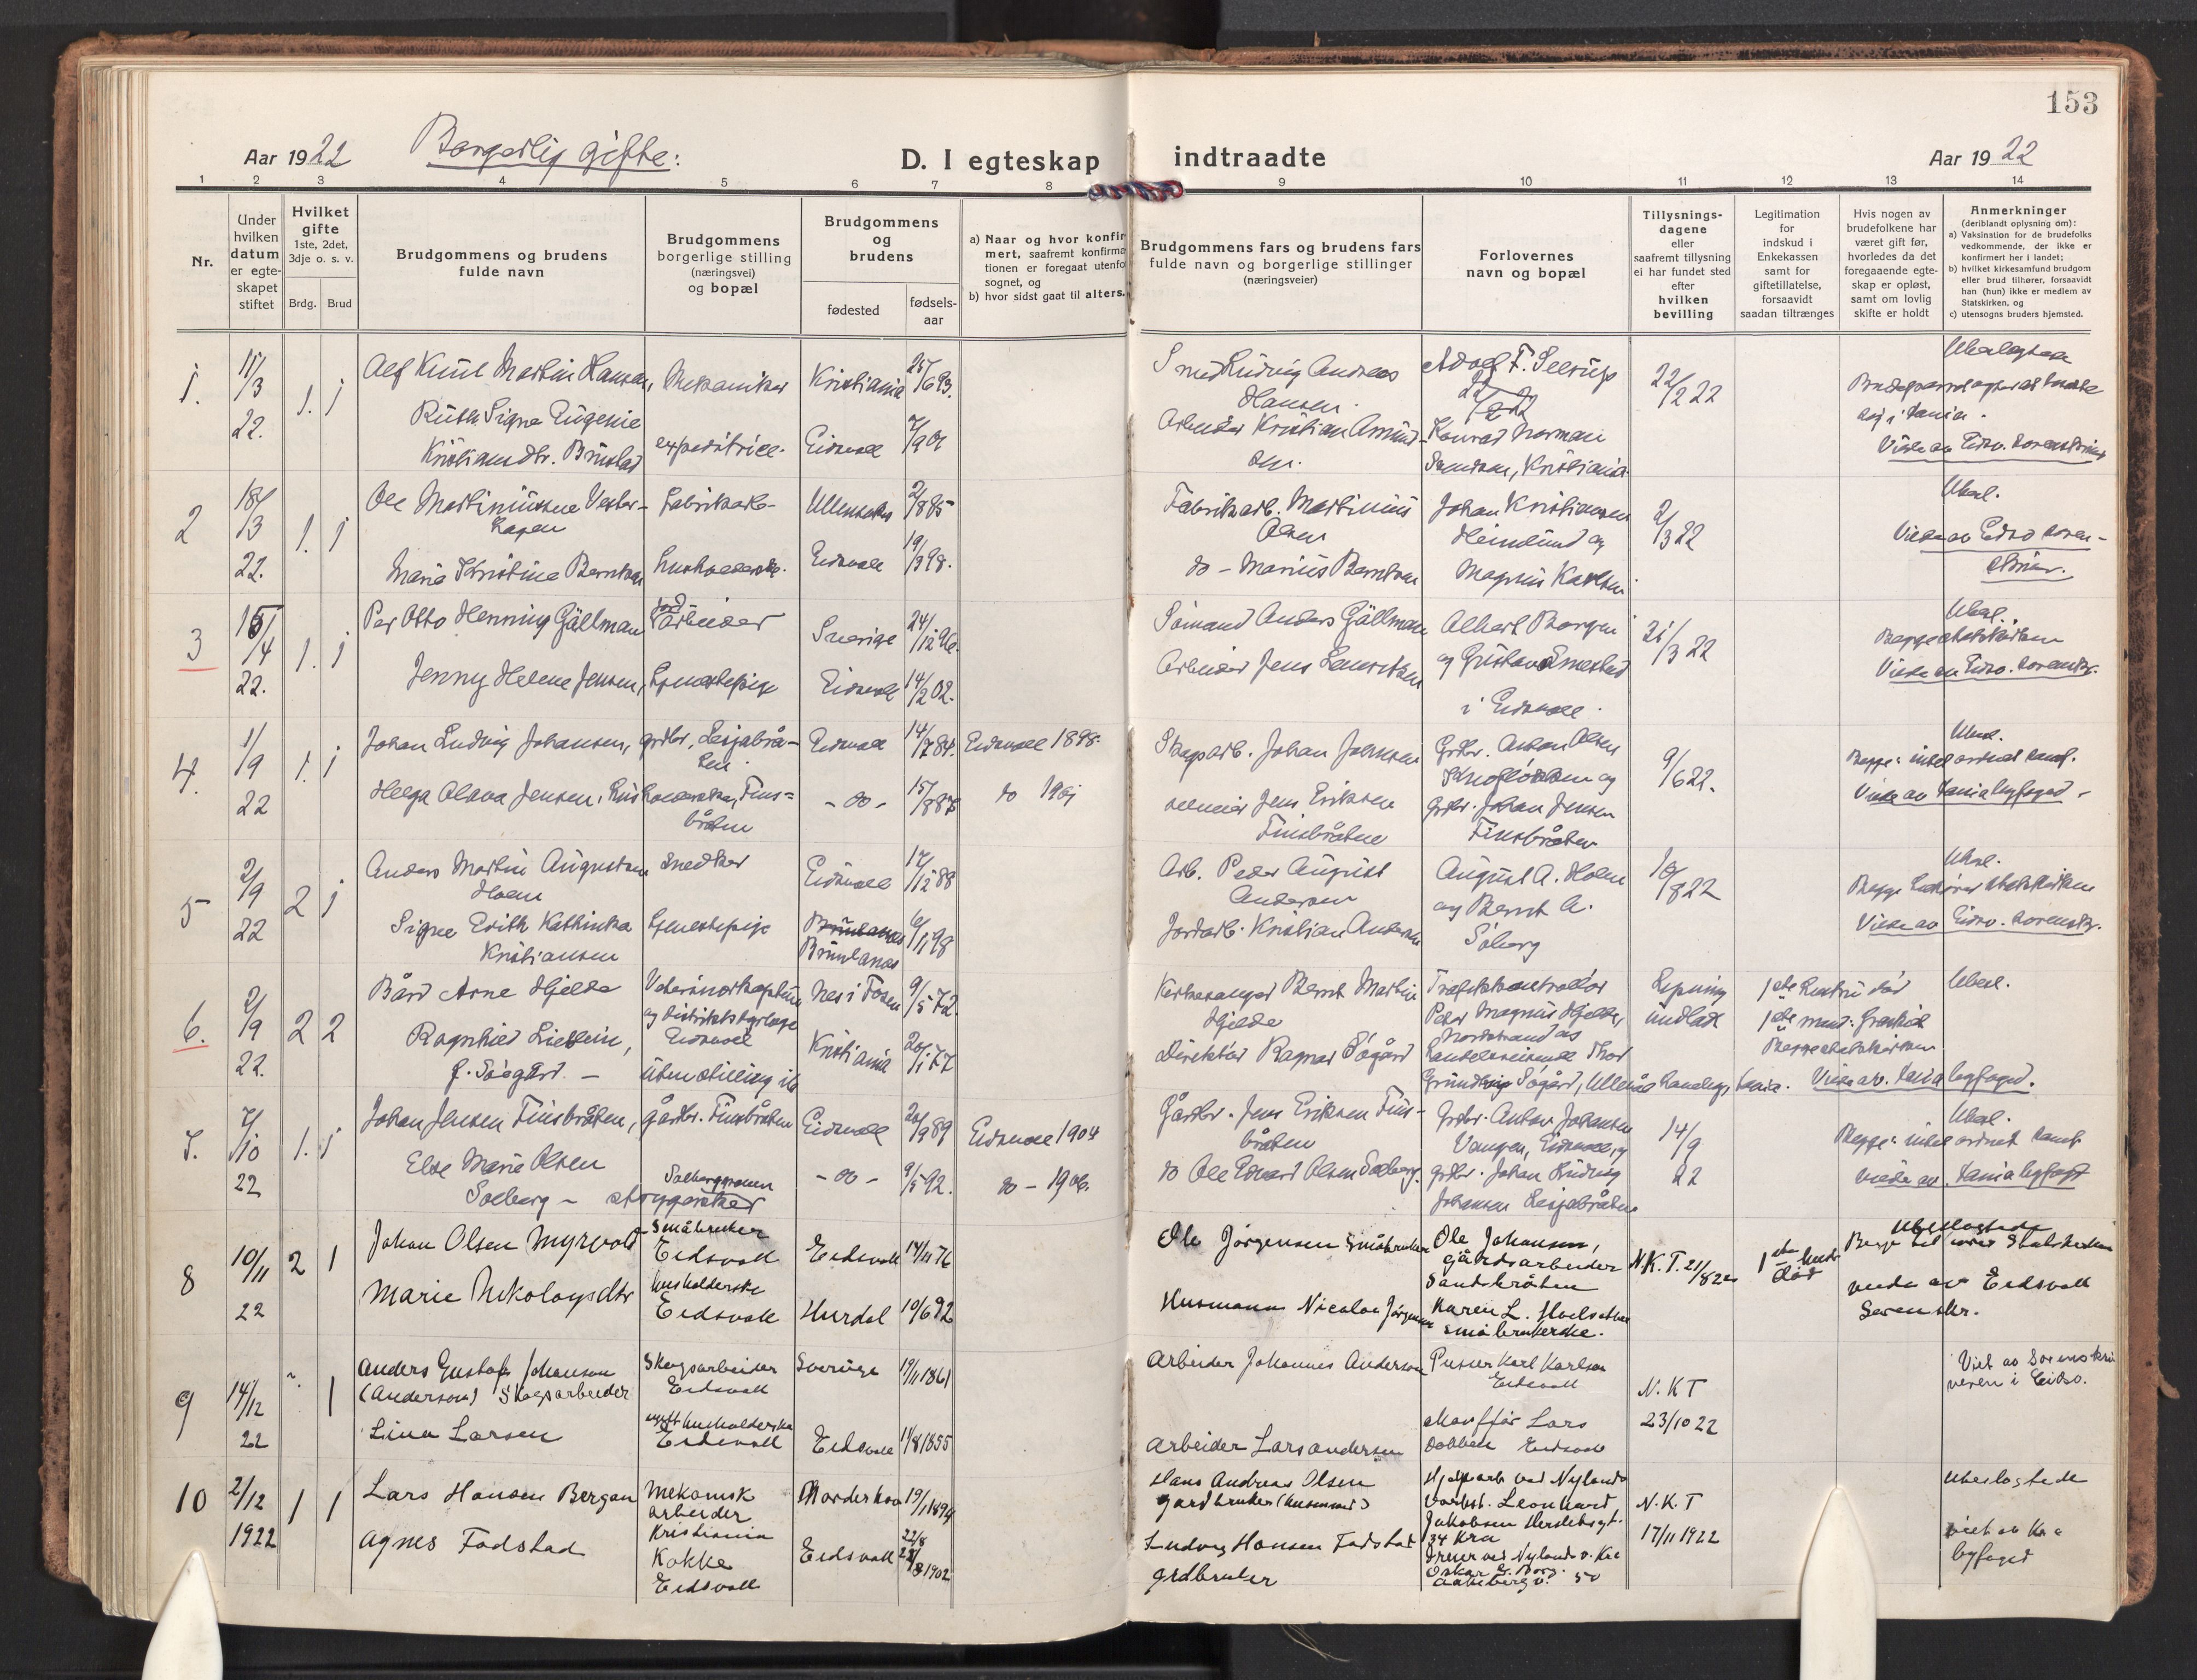 153
Aar 1922 Borgerlig gifte: D. I egteskap indtraadte Aar 1922
1 2 3 4 5 6 7 8 9 10 11 12 13 14
Nr.
Under hvilken datum er egteskapet stiftet
Hvilket gifte
1ste, 2det, 3dje o. s. v.
Brdg. Brud
Brudgommens og brudens fulde navn
Brudgommens borgerlige stilling (næringsvei) og bopæl
Brudgommens og brudens
fødested
fødsels-aar
a) Naar og hvor konfir
mert, saafremt konfirma
tionen er foregaat utenfo
sognet, og
b) hvor sidst gaat til alters.
Brudgommens fars og brudens fars
fulde navn og borgerlige stillinger
(næringsveier)
Forlovernes
navn og bopæl
Tillysnings-
dagene
eller
saafremt tillysning
ei har fundet sted
efter
hvilken
bevilling
Legitimation
for
indskud i
Enkekassen
samt for
giftetillatelse,
forsaavidt
saadan tiltrænges
Hvis nogen av
brudefolkene har
været gift før,
hvorledes da det
foregaaende egte-
skap er opløst,
samt om lovlig
skifte er holdt
Anmerkninger
(deriblandt oplysning om):
a) Vaksination for de brudefolks
vedkommende, der ikke er
konfirmert her i landet;
b) hvilket kirkesamfund brudgom
eller brud tilhører, forsaavidt
han (hun) ikke er medlem av
Statskirken, og
c) utensogns bruders hjemsted.
1. 11/3 22. 1. 1
Alf Knut Martin Hansen, Mekaniker Kristiania 25/6 93.
Ruth Signe Eugenie
Kristiansdtr. Brustad expeditrice. Eidsvoll 7/9 01
Smed Ludvig Andreas
Hansen.
Arbeider Kristian Amund-
sen.
Adolf F.
Konrad Norman
Kristiania
22/2 22
Ubeslegtede
Viede av Eidsv. Sorenskriver
2 18/3 22. 1. 1
Ole Martiniussen Vester-
hagen Fabrikarb- Ullensaker 2/8 85
Marie Kristine Berntsen husholderske. Eidsvoll 19/3 98.
Fabrikarb. Martinius
Olsen
do - Marius Berntsen
Johan Kristiansen
Heimlund og
Magnus Karlsen.
2/3 22
Ubesl.
Viede av Eidsv Soren-
skriver.
3 15/4 22. 1. 1
Per Otto Henning Gällman Arbeider Sverige 24/12 96.
Jenny Helene Jensen, tjenestepige Eidsvoll 14/2 02.
Sømand Anders Gällman
Arbeider Jens Lauritsen
Albert Borgen
og Gustav
i Eidsvoll.
21/3 22
Ubesl.
Begge statskirken
Viede av Eidsv. Sorenskr.
4. 1/9 22 1. 1
Johan Ludvig Johansen, grdbr, Lesjabrå-
ten. Eidsvoll 14/7 84. Eidsvoll 1898.
Helga Olava Jensen, Husholderske, Fins-
bråten - do - 15/8 87 do 1901
Skogsarb. Johan Johansen
Jens Eriksen
Finsbråten
Grdbr. Anton Olsen
og
grdbr. Johan Jensen
Finsbråten
9/6 22.
Ubesl.
Begge: intet ordnet samf.
Viede av Kania byfoged.
5 2/9 22 2 1
Anders Martin Augustsen
Holm snedker Eidsvoll 17/12 88
Signe Edith Kathinka
Kristiansen tjenestepige Brunlanes
Brunlanes 6/1 98
Arb. Peder August
Andersen
Jordarb. Kristian Andersen
August A. Holm
og Bernt A.
Søberg
10/8 22
Ubesl.
Begge tilhører statskirken
Viede av Eidsv. Sorenskr.
6. 2/9 22. 2 2
Bård Arne Hjelde Veterinærkaptein Nes i Fosen 9/5 72.
og distriktsdyrlæge
Eidsvoll
Ragnhild
f. Søegård. - uten stilling ib Kristiania 20/1 77
Kirkesanger Bernt Martin
Hjelde
Direktør Ragnar Søgård
Trafikkontrollør
Peder Magnus Hjelde,
Nordstrand
Handelsreisende Thor
Søgård, Ullevål Haveby, Kania.
Lysning
undlatt
1ste hustru død
1ste mand: fraskilt
Begge statskirken
Viede av. Kania byfoged.
Ubesl.
7. 7/10 22 1. 1
Johan Jensen Finsbråten, gårdbr. Finsbråten Eidsvoll 20/9 89 Eidsvoll 1904
Else Marie Olsen
Solberg - Solbergmoen - do - 9/5 92. do - 1906.
Gårdbr. Jens Eriksen Fins-
bråten
do Ole Edvard Olsen Solberg.
Grdbr. Anton Johansen
Vangen, Eidsvoll, og
grdbr. Johan Ludvig
Johansen Lesjabråten
14/9 22
Ubesl.
Begge: intet ordnet samf.
Viede av. Kania byfogt
8 10/11 22 2 1
Johan Olsen Myrvold Småbruker
Eidsvoll Eidsvoll 14/11 76
Marie Nikolaysdtr husholderske
Eidsvoll Hurdal 10/6 92
Ole Jørgensen småbruker
Husmann Nicolai Jørgensen
Ole Johansen,
gårdsarbeider
Sandbråten
Karen L.
småbrukerske.
N.K.T. 21/8 22
1ste hustr død
Ubeslægtede
Begge tilhører Statskirken
viede av Eidsvoll
Sorenskr.
9 14/12 22 1
Anders Gustaf Johanson
(Anderson) Skogsarbeider Skogsarbeider
Eidsvoll Sverige 19/11 1861
Lina Larsen husholderske
Eidsvoll Eidsvoll 1/8 1855
Arbeider Johannes Anderson
Arbeider Lars Andersen
Pusser Karl Karlsen
Eidsvoll
Lars
Dobben Eidsvoll
N.KT
23/10 22
Viet av Sorenskri
veren i Eidsv.
10 2/12 1922 1 1
Lars Hansen Bergan Mekanisk
arbeider
Kristiania Norderhov 19/1 1894
Agnes Fodstad Kokke
Eidsvoll Eidsvoll 22/8 1902
Hans Andreas Olsen
gårdbruker (husmand)
Ludvig Hansen Fodstad
grdbruker
Hjelpearb ved Nylands
verkst. Leonhard
Jakobsen Herslebsgt.
34 Kra
Dreier ved Nylands v. Kra
Oskar E. Borg.
Aakebergv. 50
N.K.T
17/11 1922
Ubeslegtede
viet av Kra
byfoged